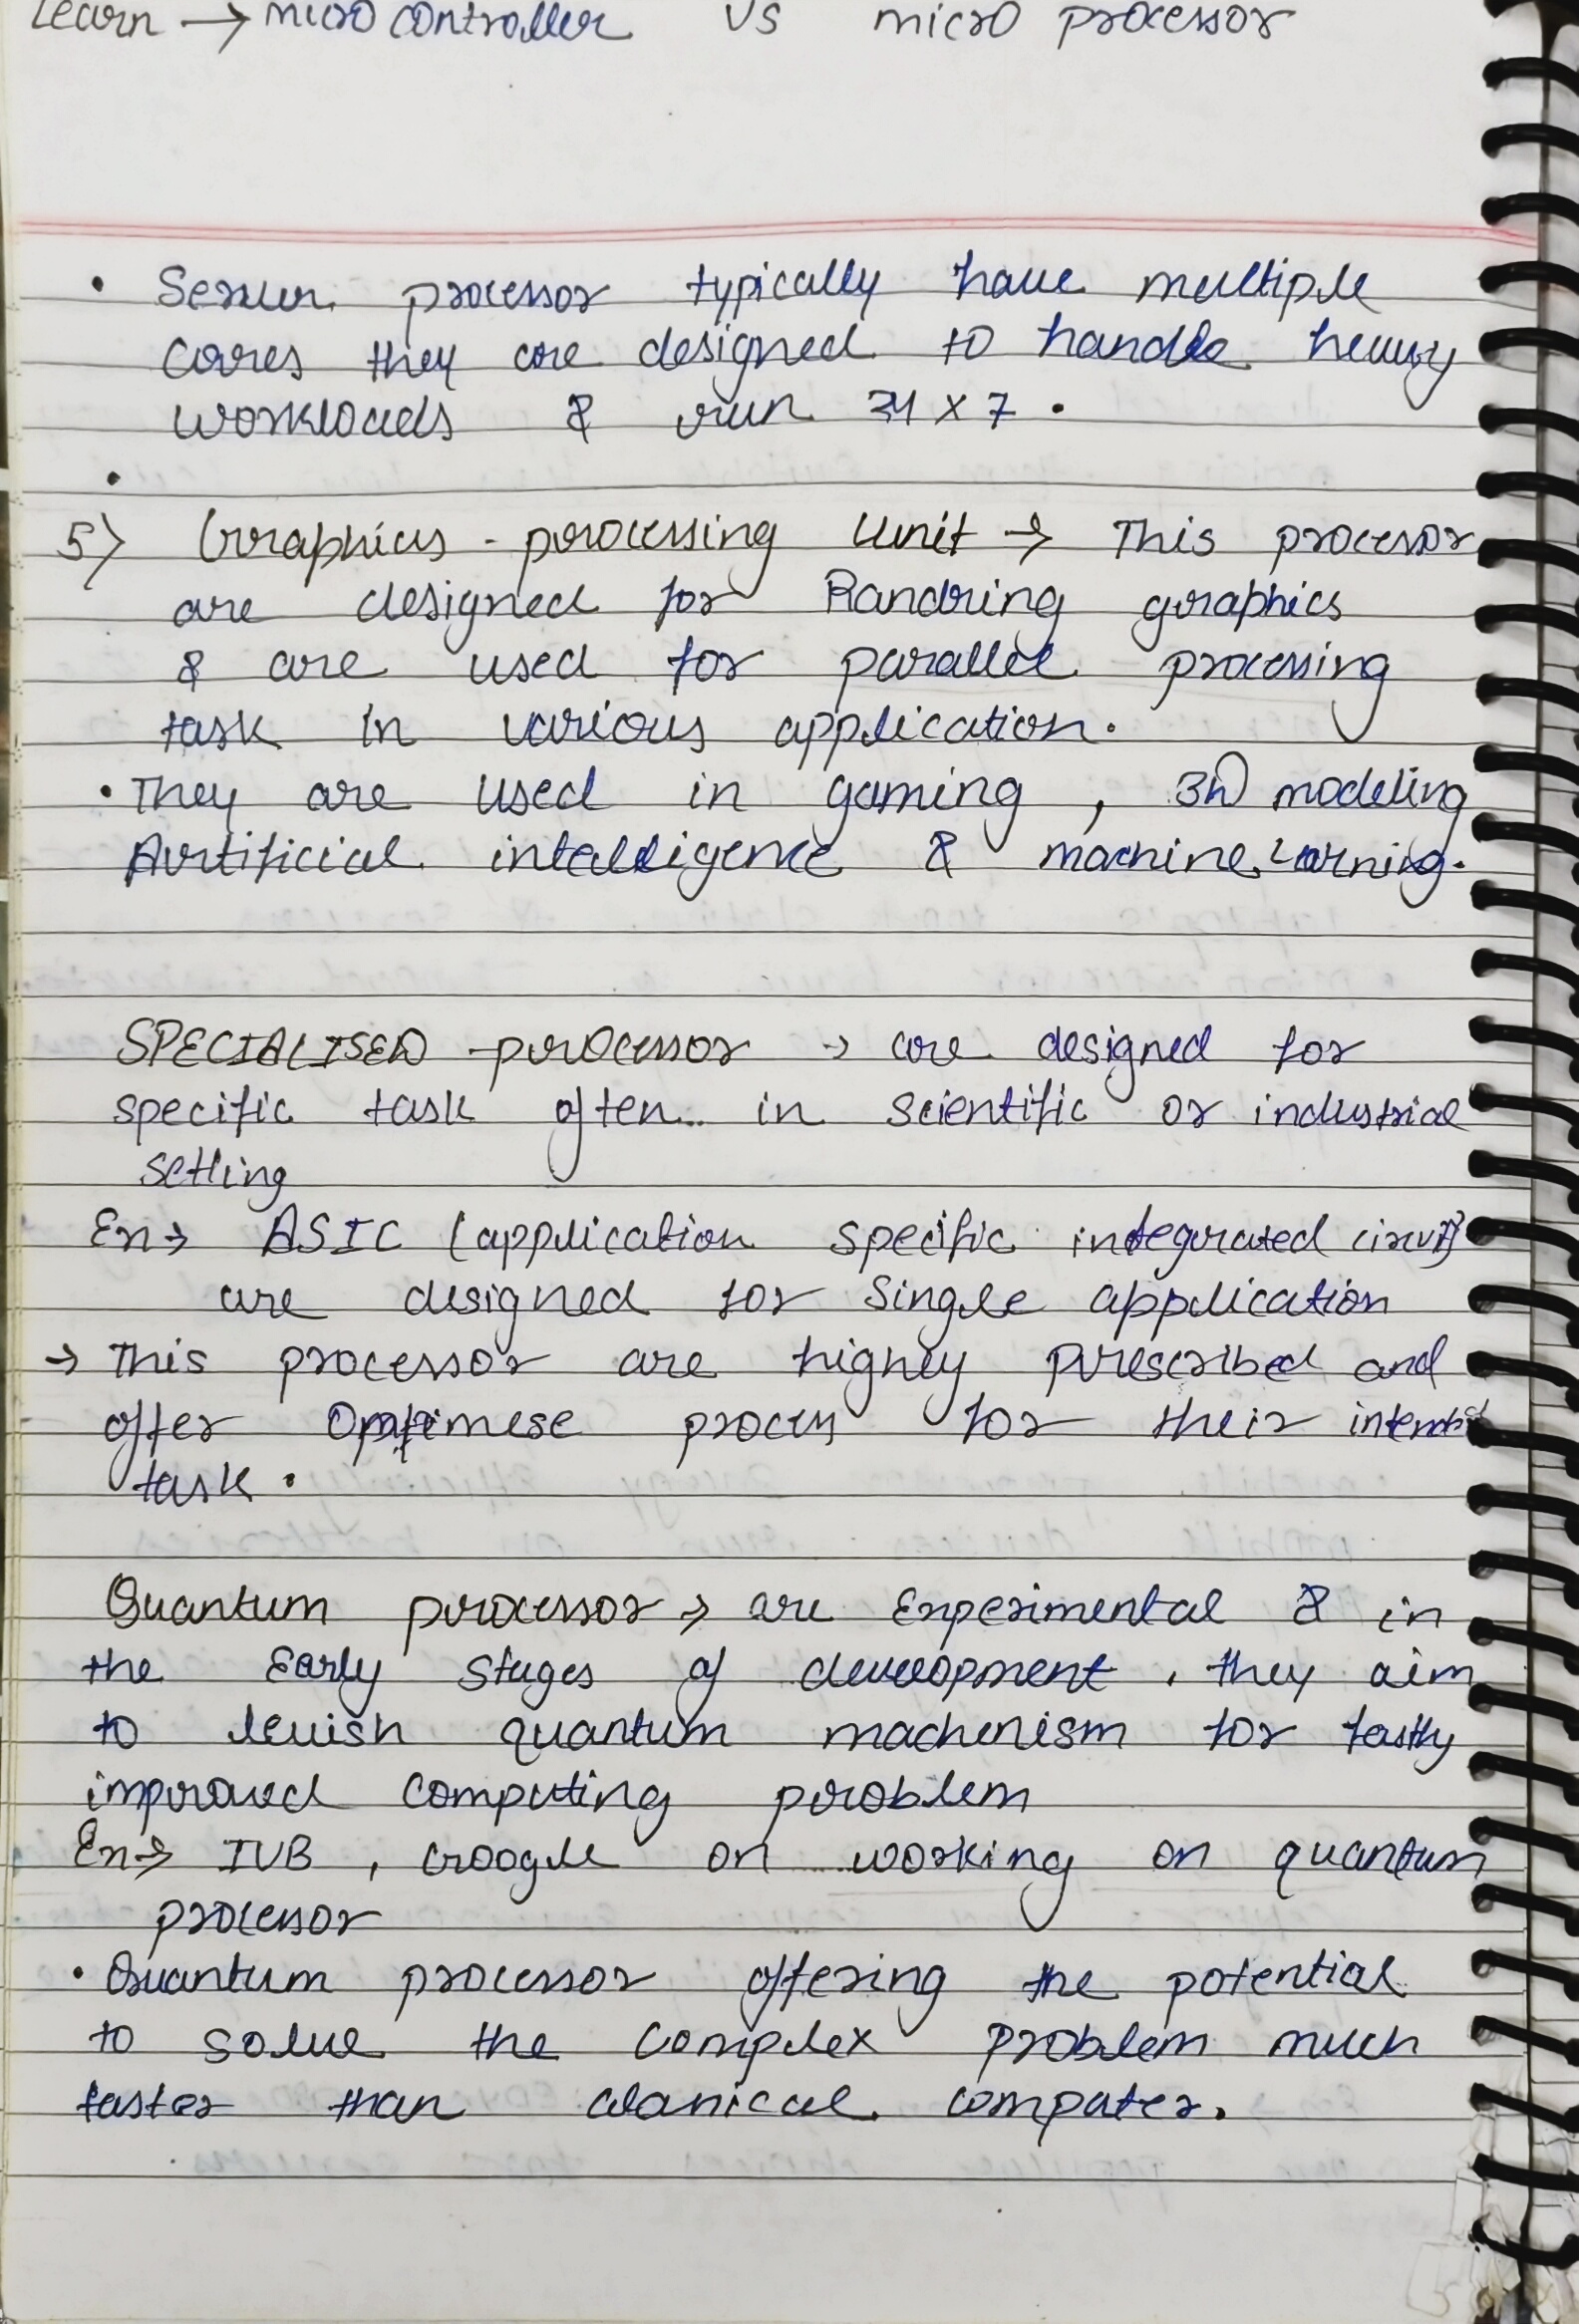 Learn → micro controller vs micro processor
• Server processor typically have multiple
cores they are designed to handle heavy
workloads & run 24 x 7 .
•
5) Graphics - processing Unit → This processor
are designed for Randring graphics
& are used for parallel processing
task in various application.
• They are used in gaming , 3D modeling
Artificial intelligence & machine Larning.
SPECIALISED processor → are designed for
specific task often in scientific or industrial
setting
Ex → ASIC (application specific integrated circuit)
are designed for single application
→ This processor are highly prescribed and
offer Optimese process for their
task .
Quantum processor → are Experimental & in
the Early stages of development , they aim
to levish quantum machenism for fastly
improved computing problem
Ex → IVB , Google on working on quantum
processor
• Quantum processor offering the potential
to solve the complex problem much
faster than classical computer.